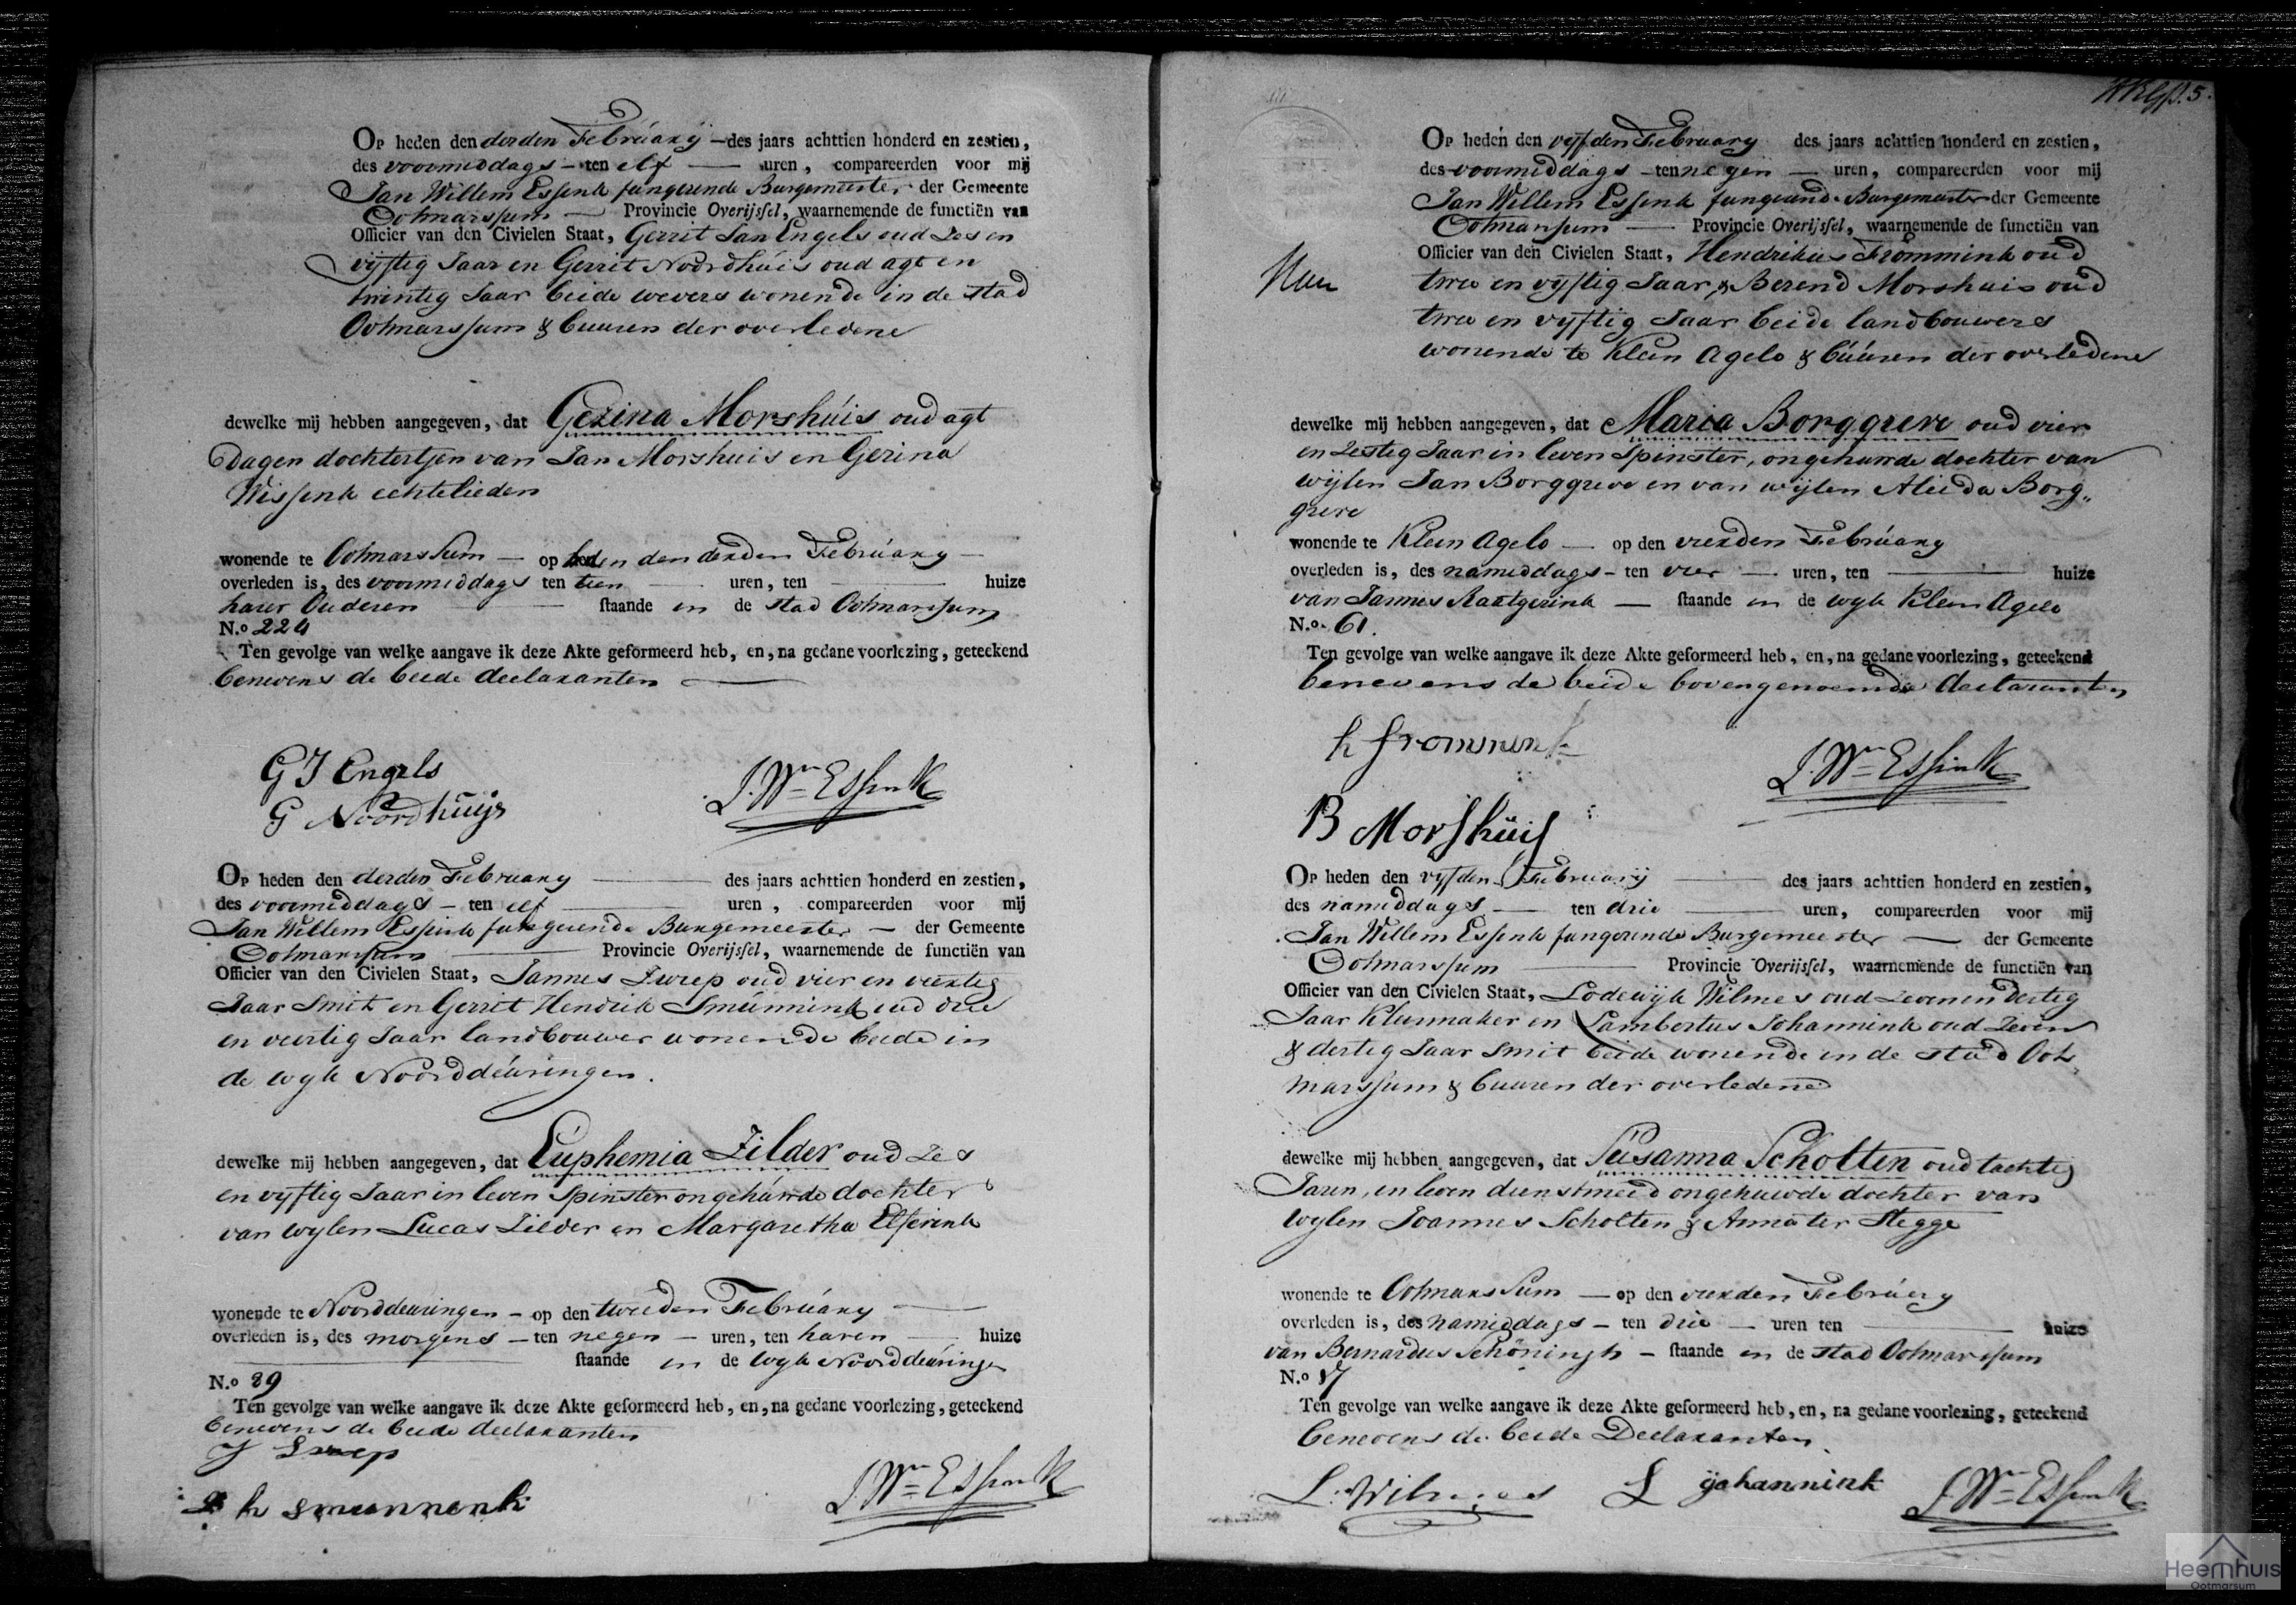 Op heden den derden February — des jaars achttien honderd en zestien,
des voormiddags — ten elf — uren, compareerden voor mij
Jan Willem Essink fungerende Burgemeester der Gemeente
Ootmarssum — Provincie Overijssel, waarnemende de functiën van
Officier van den Civielen Staat, Gerrit Jan Engels oud Zes en
vijftig Jaar en Gerrit Noordhuis oud agt en
twintig Jaar beide wevers wonende in de stad
Ootmarssum & buuren der overledene
dewelke mij hebben aangegeven, dat Gezina Morshuis oud agt
Dagen dochtertjen van Jan Morshuis en Gezina
Wissink echtelieden
wonende te Ootmarssum — op heden den derden February —
overleden is, des voormiddags ten tien — uren, ten — huize
harer Ouderen — staande in de stad Ootmarssum
N.o 224
Ten gevolge van welke aangave ik deze Akte geformeerd heb, en, na gedane voorlezing, geteekend
benevens de beide declaranten —
G J Engels
G Noordhuijs
J. Wm Essink
Op heden den derden February — des jaars achttien honderd en zestien,
des voormiddags — ten elf — uren, compareerden voor mij
Jan Willem Essink fungerende Burgemeester — der Gemeente
Ootmarssum — Provincie Overijssel, waarnemende de functiën van
Officier van den Civielen Staat, Jannes Zweep oud vier en veertig
Jaar Smit en Gerrit Hendrik Smeunnink oud drie
en veertig Jaar landbouwer wonende beide in
de wyk Noorddeuringen.
dewelke mij hebben aangegeven, dat Euphemia Zilder oud Zes
en vyftig Jaar in leven Spinster ongehuwde dochter
van wylen Lucas Zilder en Margaretha Elferink
wonende te Noorddeuringen — op den tweeden February —
overleden is, des morgens — ten negen — uren, ten haren — huize
— staande in de wyk Noorddeuringen
N.o 29
Ten gevolge van welke aangave ik deze Akte geformeerd heb, en, na gedane voorlezing, geteekend
benevens de beide declaranten
J Sweep
h smeunnenk
J. Wm Essink
5.
Op heden den vyfden February des jaars achttien honderd en zestien,
des voormiddags — ten negen — uren, compareerden voor mij
Jan Willem Essink fungerende Burgemeester der Gemeente
Ootmarssum — Provincie Overijssel, waarnemende de functiën van
Officier van den Civielen Staat, Hendrikus Frommink oud
twee en vyftig Jaar & Berend Morshuis oud
twee en vyftig Jaar beide landbouwers
wonende te Klein Agelo & buuren der overledene
dewelke mij hebben aangegeven, dat Maria Borggreve oud vier
en Zestig Jaar in leven Spinster, ongehuwde dochter van
wijlen Jan Borggreve en van wijlen Aleida Borg„
greve
wonende te Klein Agelo — op den vierden February
overleden is, des namiddags — ten vier — uren, ten — huize
van Jannes Raatgerink — staande in de wyk Klein Agelo
N.o 61.
Ten gevolge van welke aangave ik deze Akte geformeerd heb, en, na gedane voorlezing, geteekend
benevens de beide bovengenoemde declaranten
h frommink
J. Wm Essink
B Morshuis
Op heden den vyfden February — des jaars achttien honderd en zestien,
des namiddags — ten drie — uren, compareerden voor mij
Jan Willem Essink fungerende Burgemeester — der Gemeente
Ootmarssum — Provincie Overijssel, waarnemende de functiën van
Officier van den Civielen Staat, Lodewyk Wilmes oud Zeven en dertig
Jaar Kleermaker en Lambertus Johannink oud Zeven
& dertig Jaar Smit beide wonende in de stad Oot„
marssum & buuren der overledene
dewelke mij hebben aangegeven, dat Susanna Scholten oud tachtig
Jaren, in leven dienstmeid ongehuwde dochter van
wylen Joannes Scholten & Anna ter Stegge
wonende te Ootmarssum — op den vierden February
overleden is, des namiddags — ten drie — uren ten — huize
van Bernardus Schöningh — staande in de stad Ootmarssum
N.o 17
Ten gevolge van welke aangave ik deze Akte geformeerd heb, en, na gedane voorlezing, geteekend
benevens de beide Declaranten.
L. Wilmes
L johannink
J. Wm Essink
Heemhuis
Ootmarsum